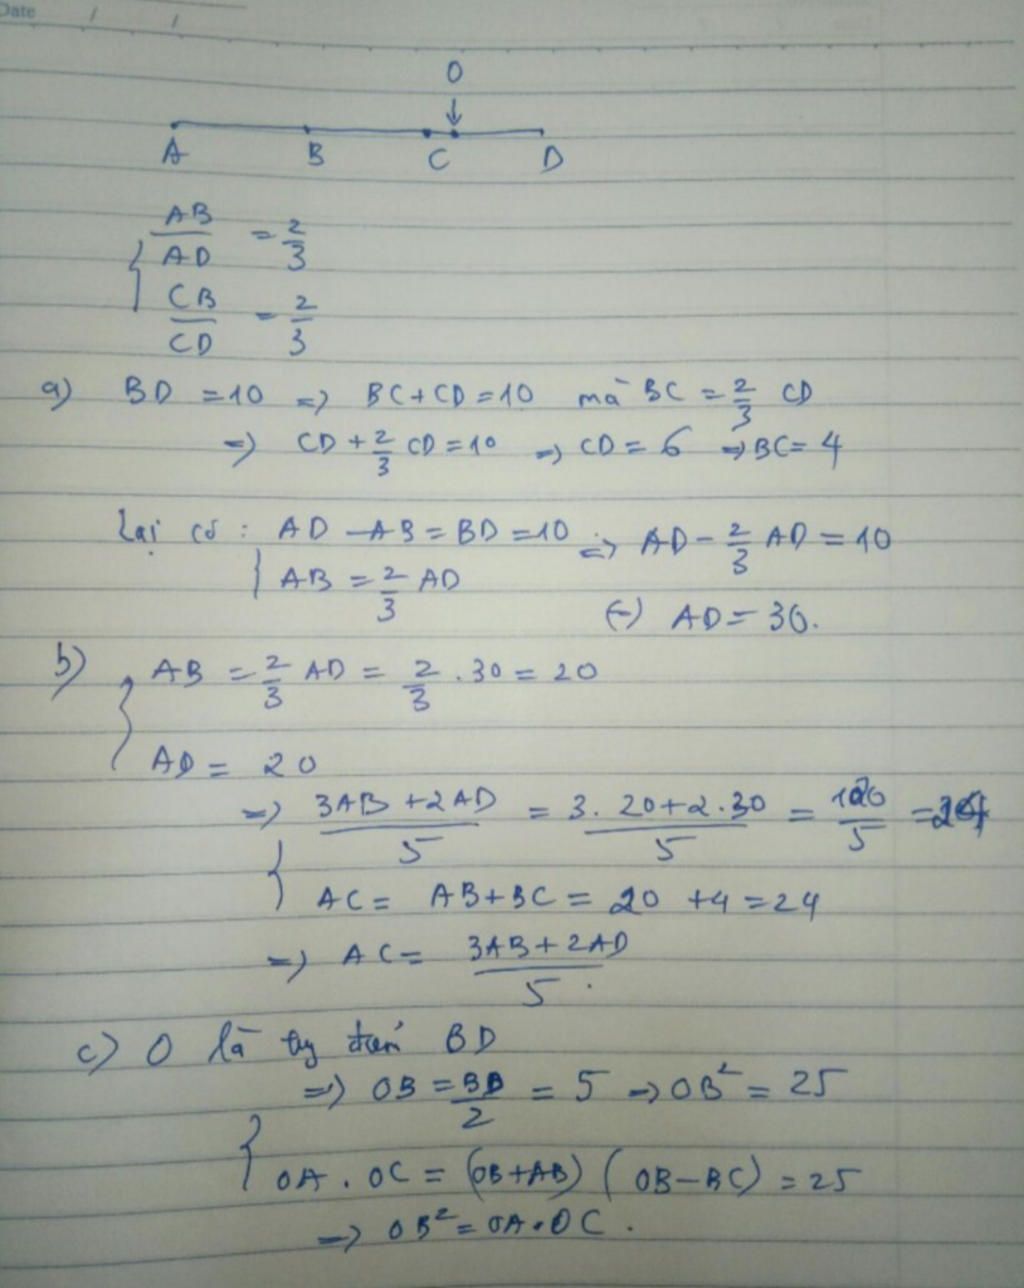 Date / /
O
↓
A B C D
AB/AD = 2/3
CB/CD = 2/3
a) BD = 10 => BC + CD = 10 mà BC = 2/3 CD
=> CD + 2/3 CD = 10 => CD = 6 => BC = 4
Lại có : AD - AB = BD = 10 => AD - 2/3 AD = 10
AB = 2/3 AD
(=) AD = 30.
b) AB = 2/3 AD = 2/3 . 30 = 20
AD = 20
=> (3AB + 2AD)/5 = (3. 20 + 2. 30)/5 = 120/5 = 24
AC = AB + BC = 20 + 4 = 24
=> AC = (3AB + 2AD)/5 .
c) O là BD
=> OB = BD/2 = 5 => OB² = 25
OA . OC = (OB + AB) (OB - BC) = 25
=> OB² = OA . OC .